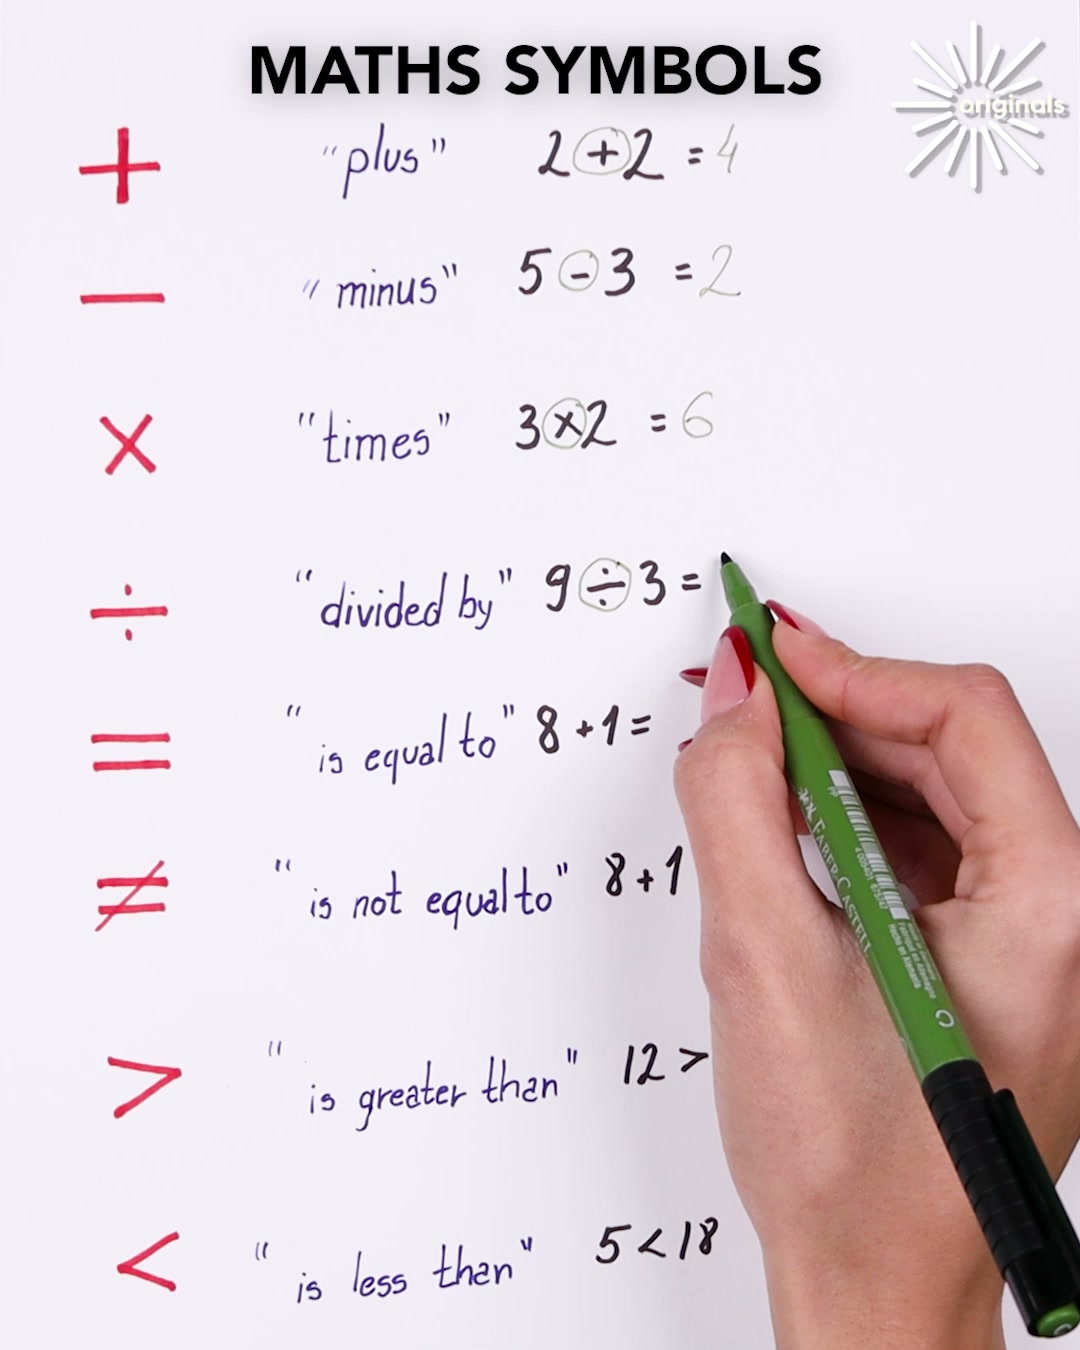 MATHS SYMBOLS
originals
+ "plus" 2 + 2 = 4
− "minus" 5 - 3 = 2
× "times" 3 × 2 = 6
÷ "divided by" 9 ÷ 3 =
= "is equal to" 8 + 1 =
≠ "is not equal to" 8 + 1
> "is greater than" 12 >
< "is less than" 5 < 18
FABER-CASTELL